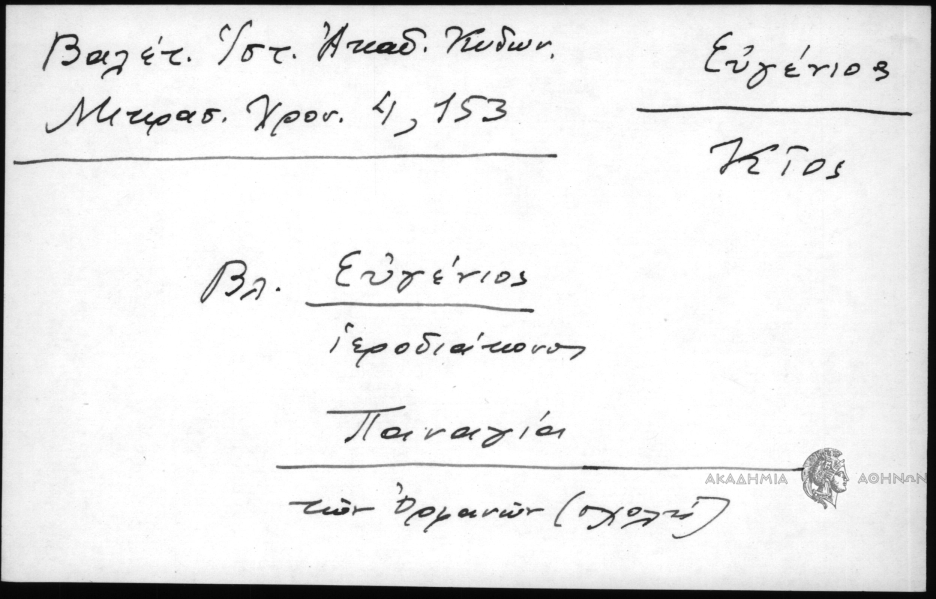 Βαλέτ. Ἱστ. Ἀκαδ. Κυδων.
Μικρασ. Χρον. 4, 153
Εὐγένιος
Κῖος
Βλ. Εὐγένιος
ἱεροδιάκονος
Παναγία
τῶν Ὀρφανῶν (σχολή)
ΑΚΑΔΗΜΙΑ ΑΘΗΝΩΝ